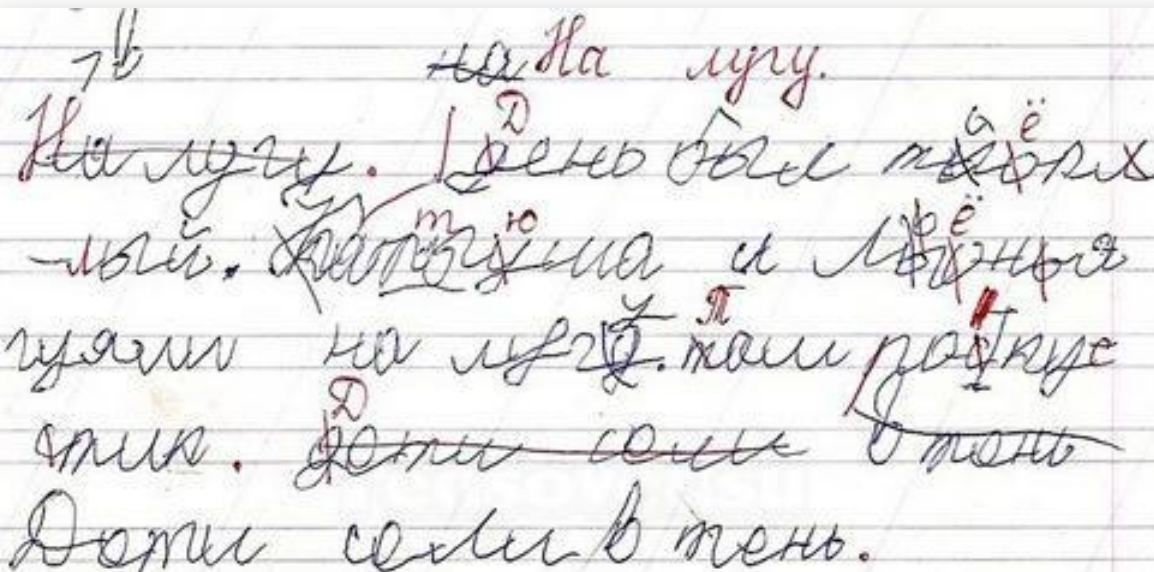 на На лугу.
На лугу. День был тёпл
-лый. Катюша и Лёня
гуяли на лугу. Там рос ку
стик. Дети сели в тень
Доти сели в тень.